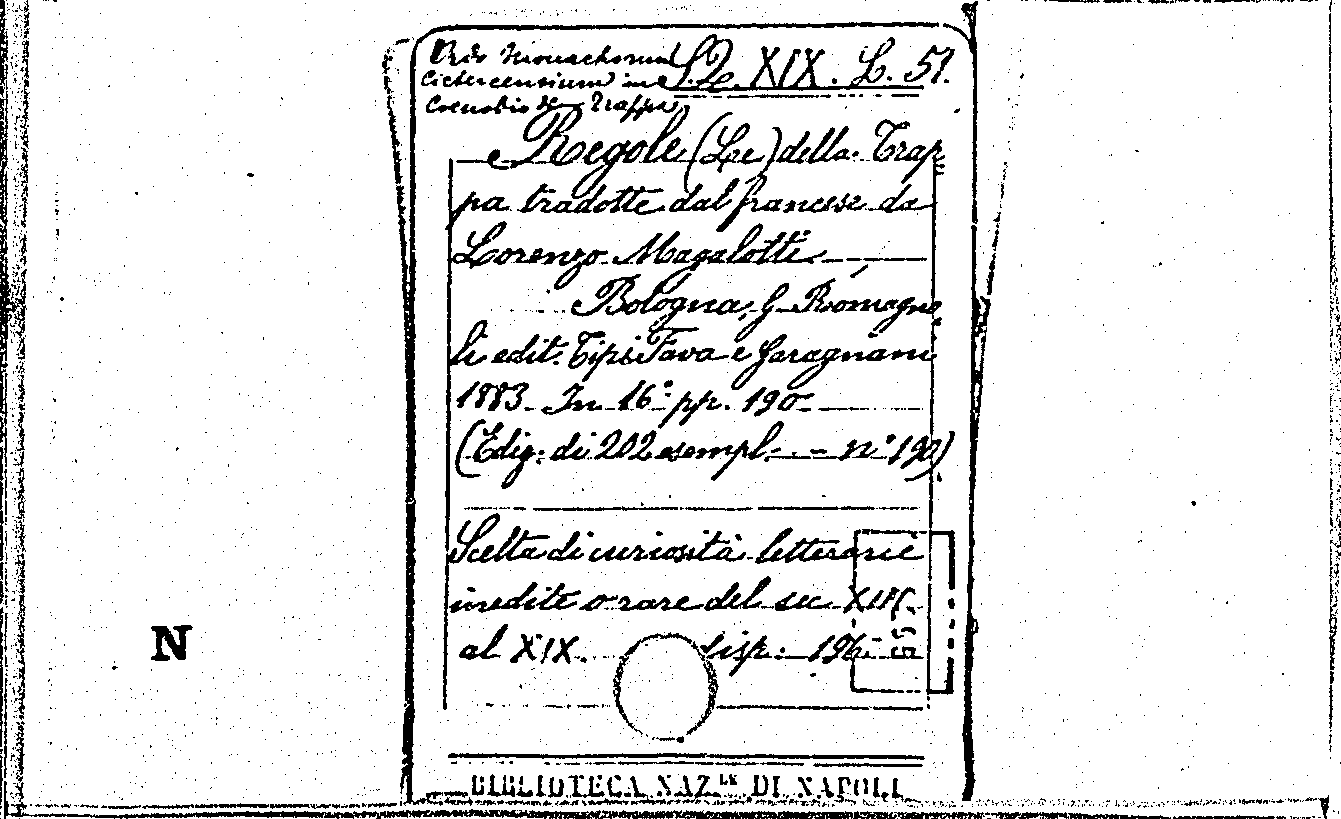 Ordo Monachorum
Cistercensium in
Coenobio de Trappa
S.Q. XIX. L. 51.
Regole (Le) della Trap
pa tradotte dal francese da
Lorenzo Magalotti
Bologna, G. Romagno
li edit. Tipi Fava e Garagnani
1883. In 16° pp. 190
(Ediz. di 202 esempl. - n° 190)
Scelta di curiosità letterarie
inedite o rare del sec XIII
al XIX. disp. 196
N
BIBLIOTECA NAZ.LE DI NAPOLI